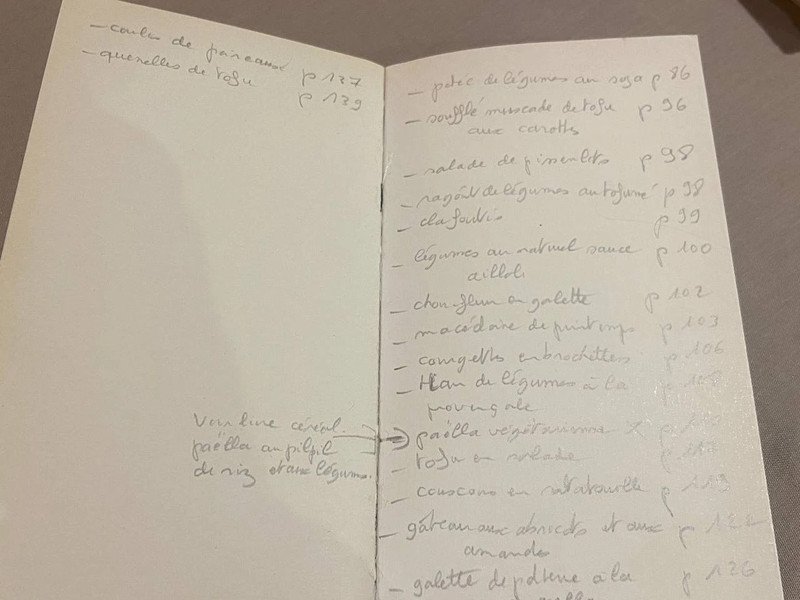 — coulis de p 137
— quenelles de tofu p 139
Voir livre céréal.
paëlla au pilpil
de riz et aux légumes.
— potée de légumes au soja p 86
— soufflé muscade de tofu p 96
aux carottes
— salade de pissenlits p 98
— ragoût de légumes au tofumé p 98
— clafoutis p 99
— légumes au naturel sauce p 100
aïlloli
— chou-fleur en galette p 102
— macédoine de printemps p 103
— courgettes en brochettes p 106
— flan de légumes à la p 108
provençale
— paëlla végétarienne x p
— tofu en salade p
— couscous en ratatouille p 119
— gâteau aux abricots et aux p 122
amandes
— galette de à la p 126